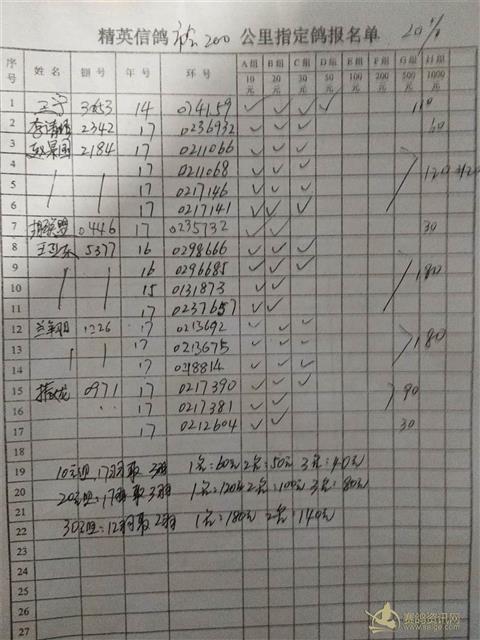 精英信鸽 200 公里指定鸽报名单 20%
序号 姓名 棚号 年号 环号 A组10元 B组20元 C组30元 D组50元 E组100元 F组200元 G组500元 H组1000元
1 3053 14 074159 ✓ ✓ ✓ ✓ 110
2 2342 17 0236932 ✓ ✓ ✓ 60
3 2184 17 0211066 ✓ ✓ ✓
4 17 0211068 ✓ ✓ 120
5 17 0217146 ✓ ✓ ✓
6 17 0217141 ✓ ✓ ✓
7 0446 17 0235732 ✓ ✓ 30
8 5377 16 0298666 ✓ ✓ ✓
9 16 0296685 ✓ ✓ ✓ 180
10 15 0131873 ✓ ✓
11 17 0237657 ✓ ✓
12 17 0213692 ✓ ✓ ✓
13 17 0213675 ✓ ✓ ✓ 180
14 17 ✓ ✓ ✓
15 0971 17 0217390 ✓ ✓ ✓
16 17 0217381 ✓ ✓ 90
17 17 0212604 ✓ ✓ 30
18
19 10元组:17羽取3羽 1名:60元 2名:50元 3名:40元
20 20元组:17羽取3羽 1名:120元 2名:100元 3名:80元
21
22 30元组:12羽取2羽 1名:180元 2名:140元
23
24
25
26
27
赛鸽资讯网
www.saige.com